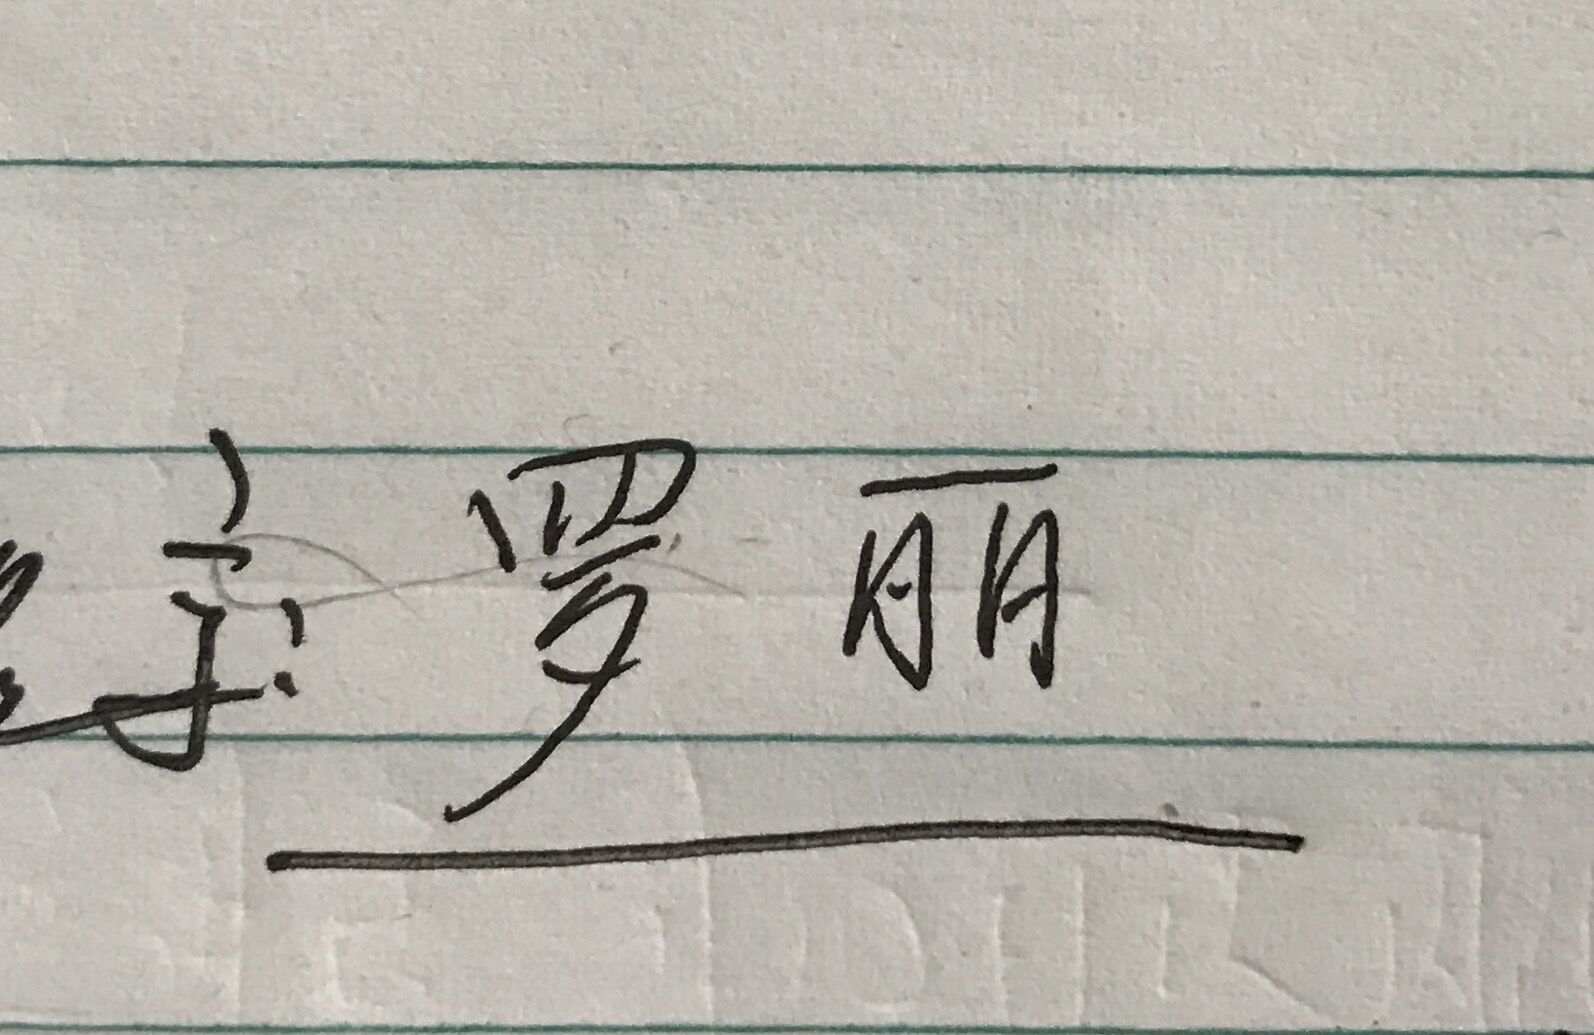 字：罗丽